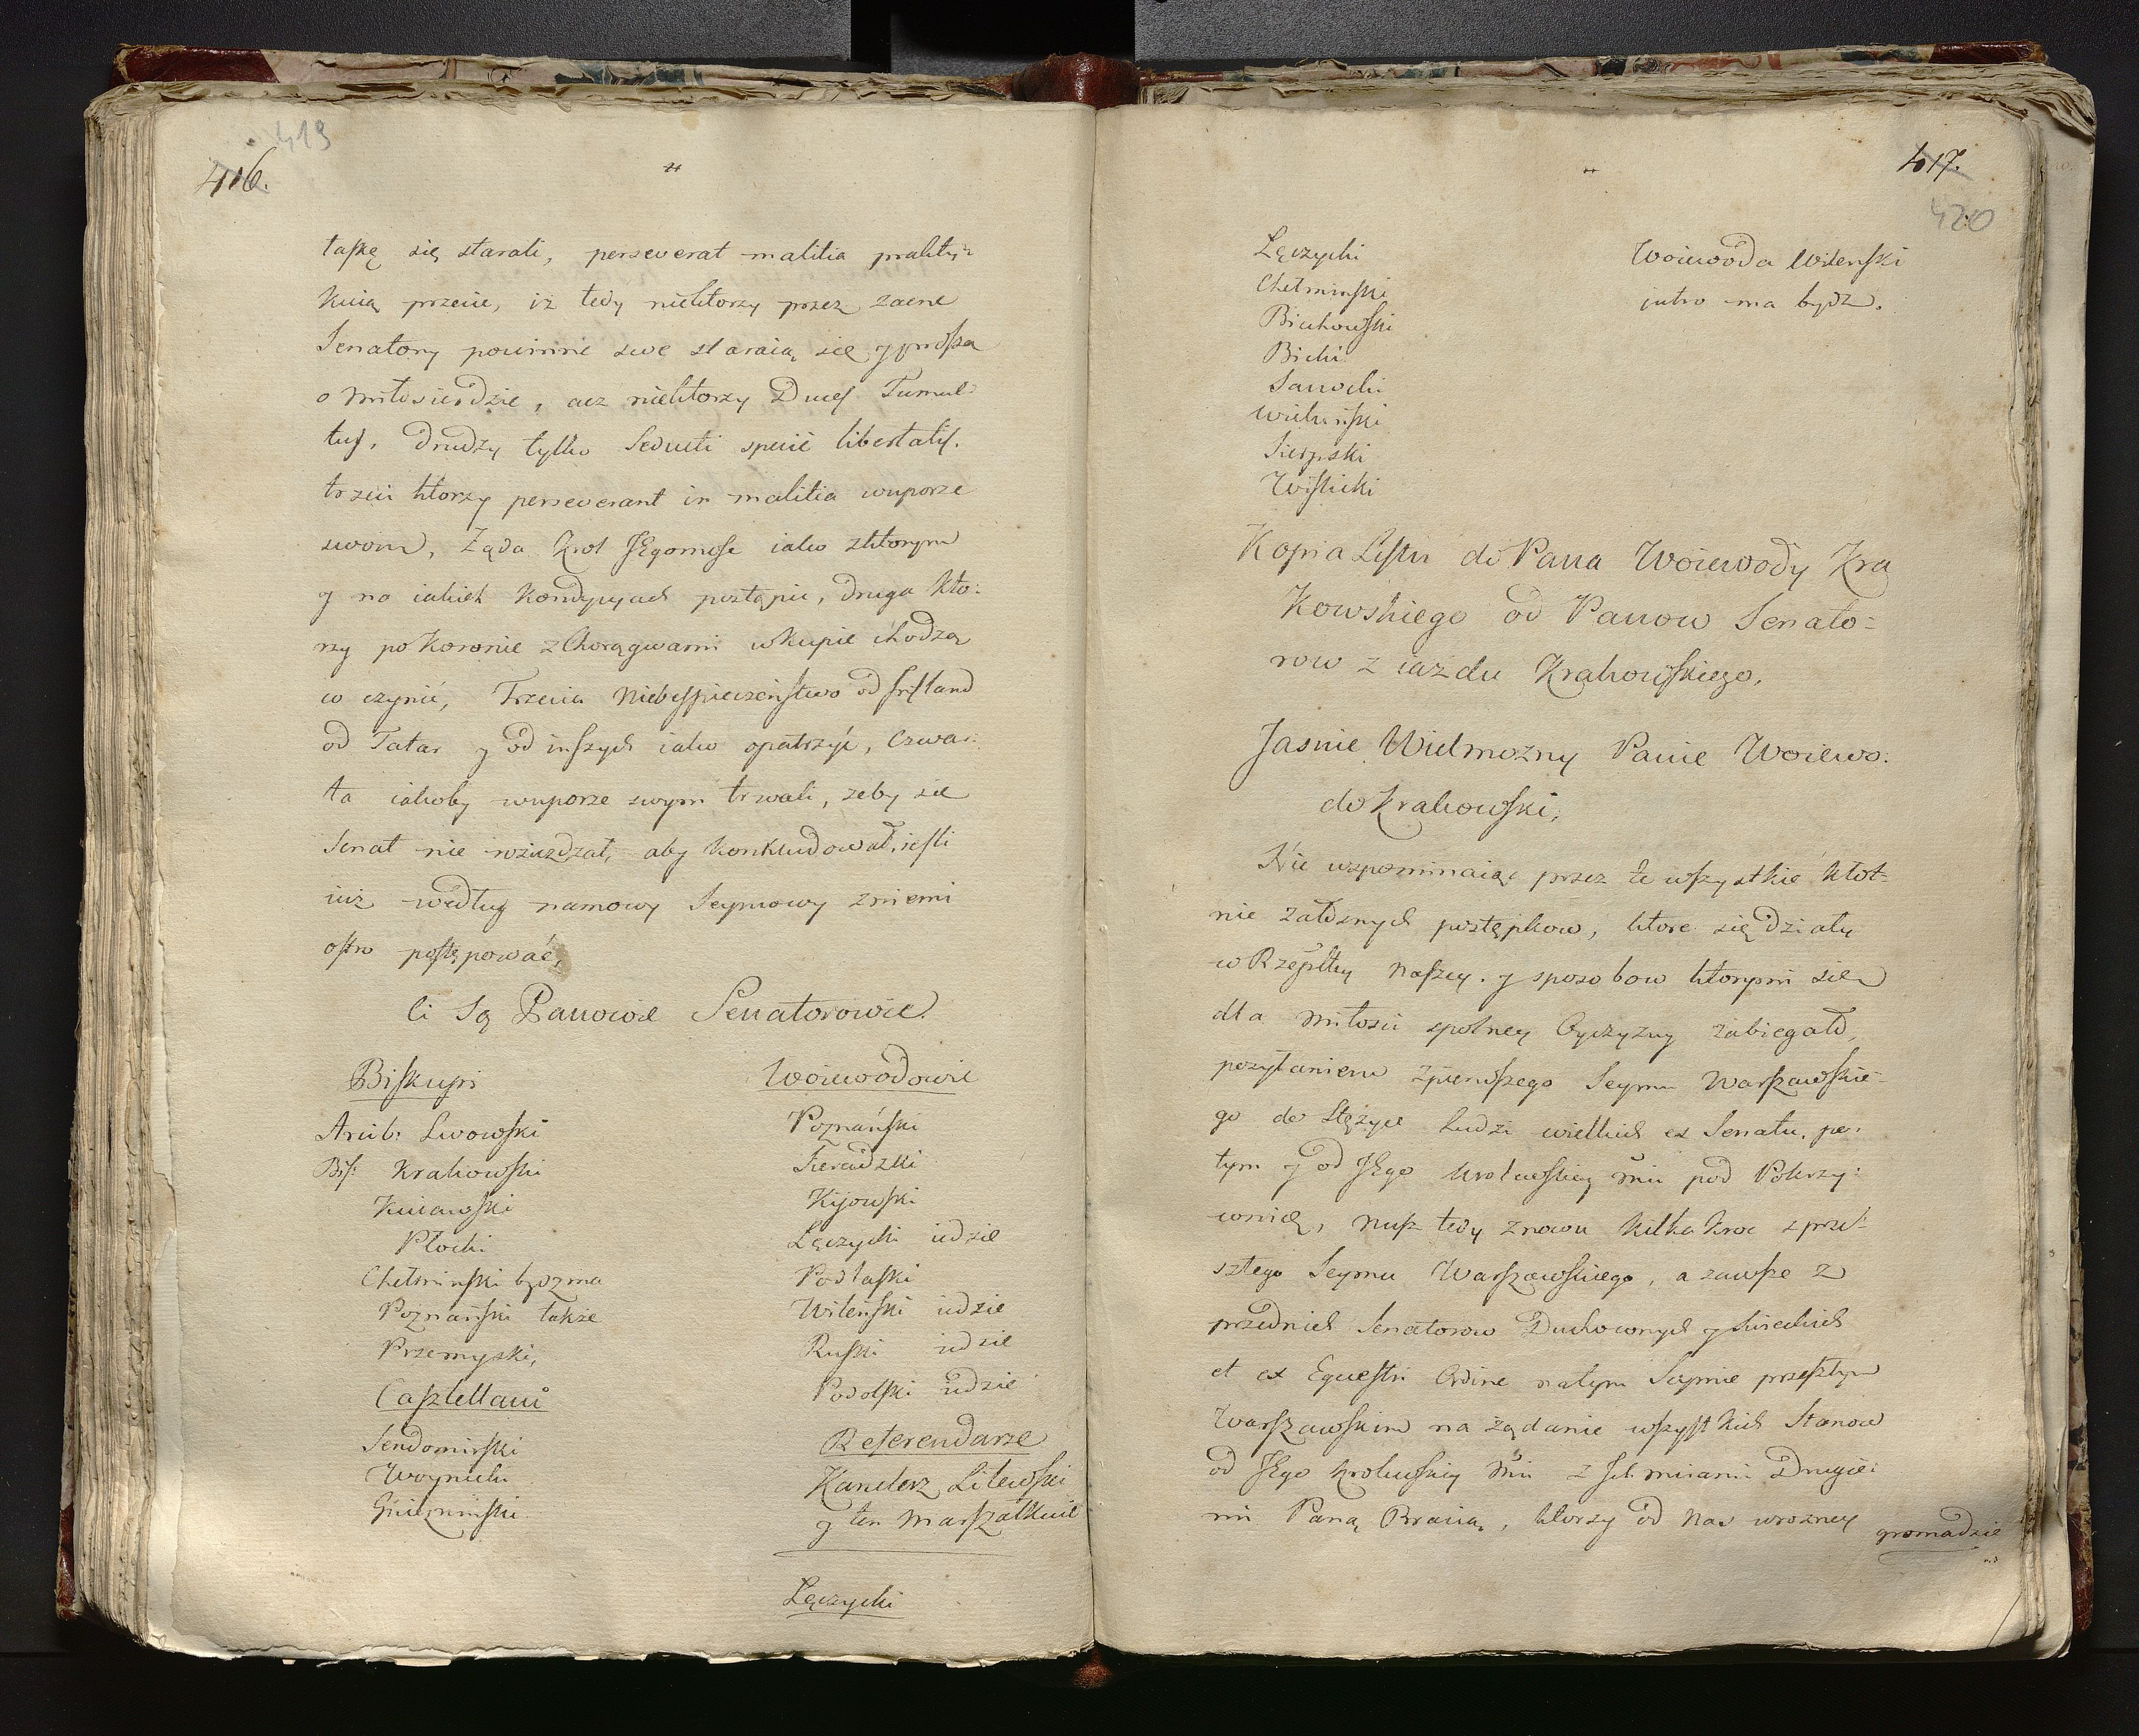 419
416.
łaskę się starali, perseverat malitia prakty:
kuią przecie, iż tedy niektorzy przez zacne
Senatory powinne swe staraią się y proszą
o miłosierdzie, acz niektorzy Duces Tumul:
tus, drudzy tylko Seducti specie libertatis.
trzeci ktorzy perseverant in malitia wuporze
swoim, Żąda Krol JEgomość iako zktorym
y na iakich Kondycyach postąpić, druga kto:
rzy po Koronie z Chorągwami w kupie chodzą
co czynić, Trzecia Niebespieczeństwo od Infland
od Tatar y od inszych iako opatrzyć, czwar:
ta iakoby wuporze swym trwali, żeby się
Senat nie roziezdzał, aby konkludował, iesli
iuż według namowy Seymowy zniemi
ostro postępować,
Ci Są Panowie Senatorowie
Biskupi
Arcib: Lwowski
Bis: Krakowski
Kuiawski
Płocki
Chełminski bydz ma
Poznański także
Przemyski,
Casztellani
Sendomirski
Woynicki
Gniezninski
Woiewodowie
Poznański
Sieradzki
Kijowski
Łęczycki iedzie
Podlaski
Wileński iedzie
Ruski iedzie
Podolski iedzie
Referendarze
Kanclerz Litewski
y ten Marszałkuie
Łęczycki
417.
420
Łęczycki
Chełminski
Biechowski
Biecki
Sanocki
Wieluński
Sierpski
Wislicki
Woiewoda Wilenski
iutro ma bydz.
Kopia Listu do Pana Woiewody Kra
Kowskiego od Panow Senato:
row ziazdu Krakowskiego,
Jasnie Wielmozny Panie Woiewo:
do Krakowski,
Nie wspominaiąc przez te wszystkie kłot:
nie żałosnych postępkow, ktore się działy
w Rzepltey naszey. y sposobow ktorymi się
dla miłosci spolney Oyczyzny zabiegało,
posyłaniem zpierwszego Seymu Warszawskie:
go do Stężyce ludzi wielkich ex Senatu, po:
tym y od JEgo Krolewskiey Mci pod Pokrzy:
wnicę, nusz tedy znowu kilka kroc z prze:
szłego Seymu Warszawskiego, a zawsze z
przednich Senatorow Duchownych y Swieckich
et ex Equestri Ordine natym Seymie przeszłym
Warszawskim na żądanie wszystkich Stanow
od JEgo Krolewskiey Mci z Ich Mciami Drugie:
mi Pany Bracią, ktorzy od nas wrozney
gromadzie